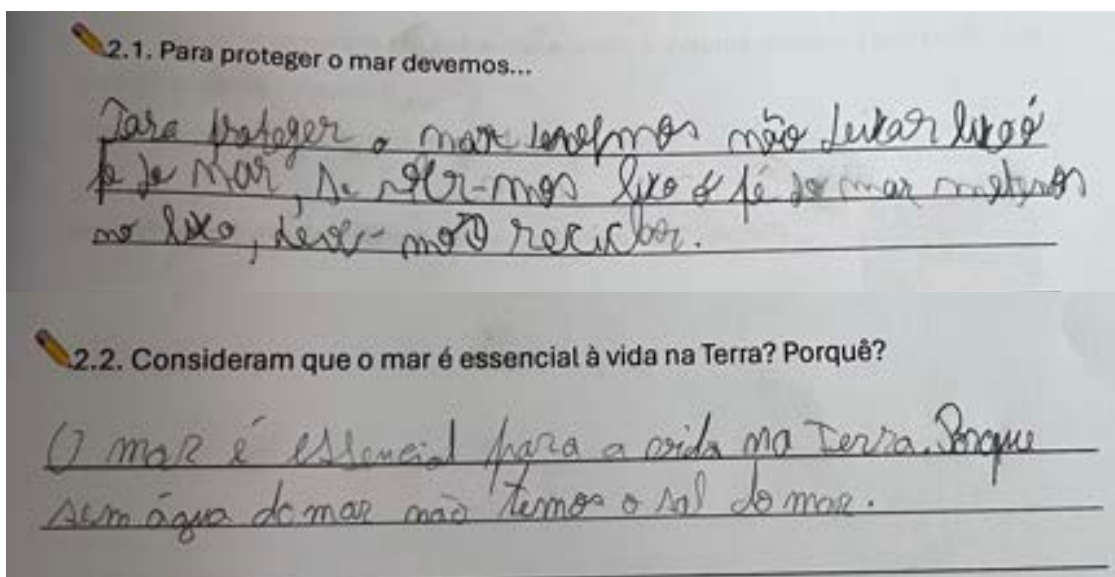 2.1. Para proteger o mar devemos...
Para proteger o mar devemos não deixar lixo é
pe do mar, se ver-mos lixo é pé do mar metemos
no lixo, deve-mos reciclar.
2.2. Consideram que o mar é essencial à vida na Terra? Porquê?
O mar é essencial para a vida na Terra. Porque
sem água do mar não temos o sal do mar.